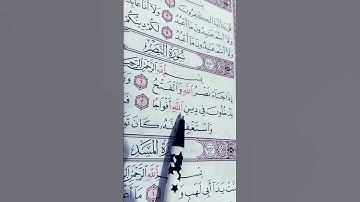 قُلْ يَا أَيُّهَا الْكَافِرُونَ
وَلَا أَنَا عَابِدٌ
وَلَا أَنتُمْ عَابِدُونَ مَا أَعْبُدُ
سُورَةُ النَّصْرِ
بِسْمِ اللَّهِ الرَّحْمَٰنِ الرَّحِيمِ
إِذَا جَاءَ نَصْرُ اللَّهِ وَالْفَتْحُ ١
يَدْخُلُونَ فِي دِينِ اللَّهِ أَفْوَاجًا ٢
وَاسْتَغْفِرْهُ إِنَّهُ كَانَ
سُورَةُ الْمَسَدِ
بِسْمِ اللَّهِ الرَّحْمَٰنِ الرَّحِيمِ
تَبَّتْ يَدَا أَبِي لَهَبٍ وَ